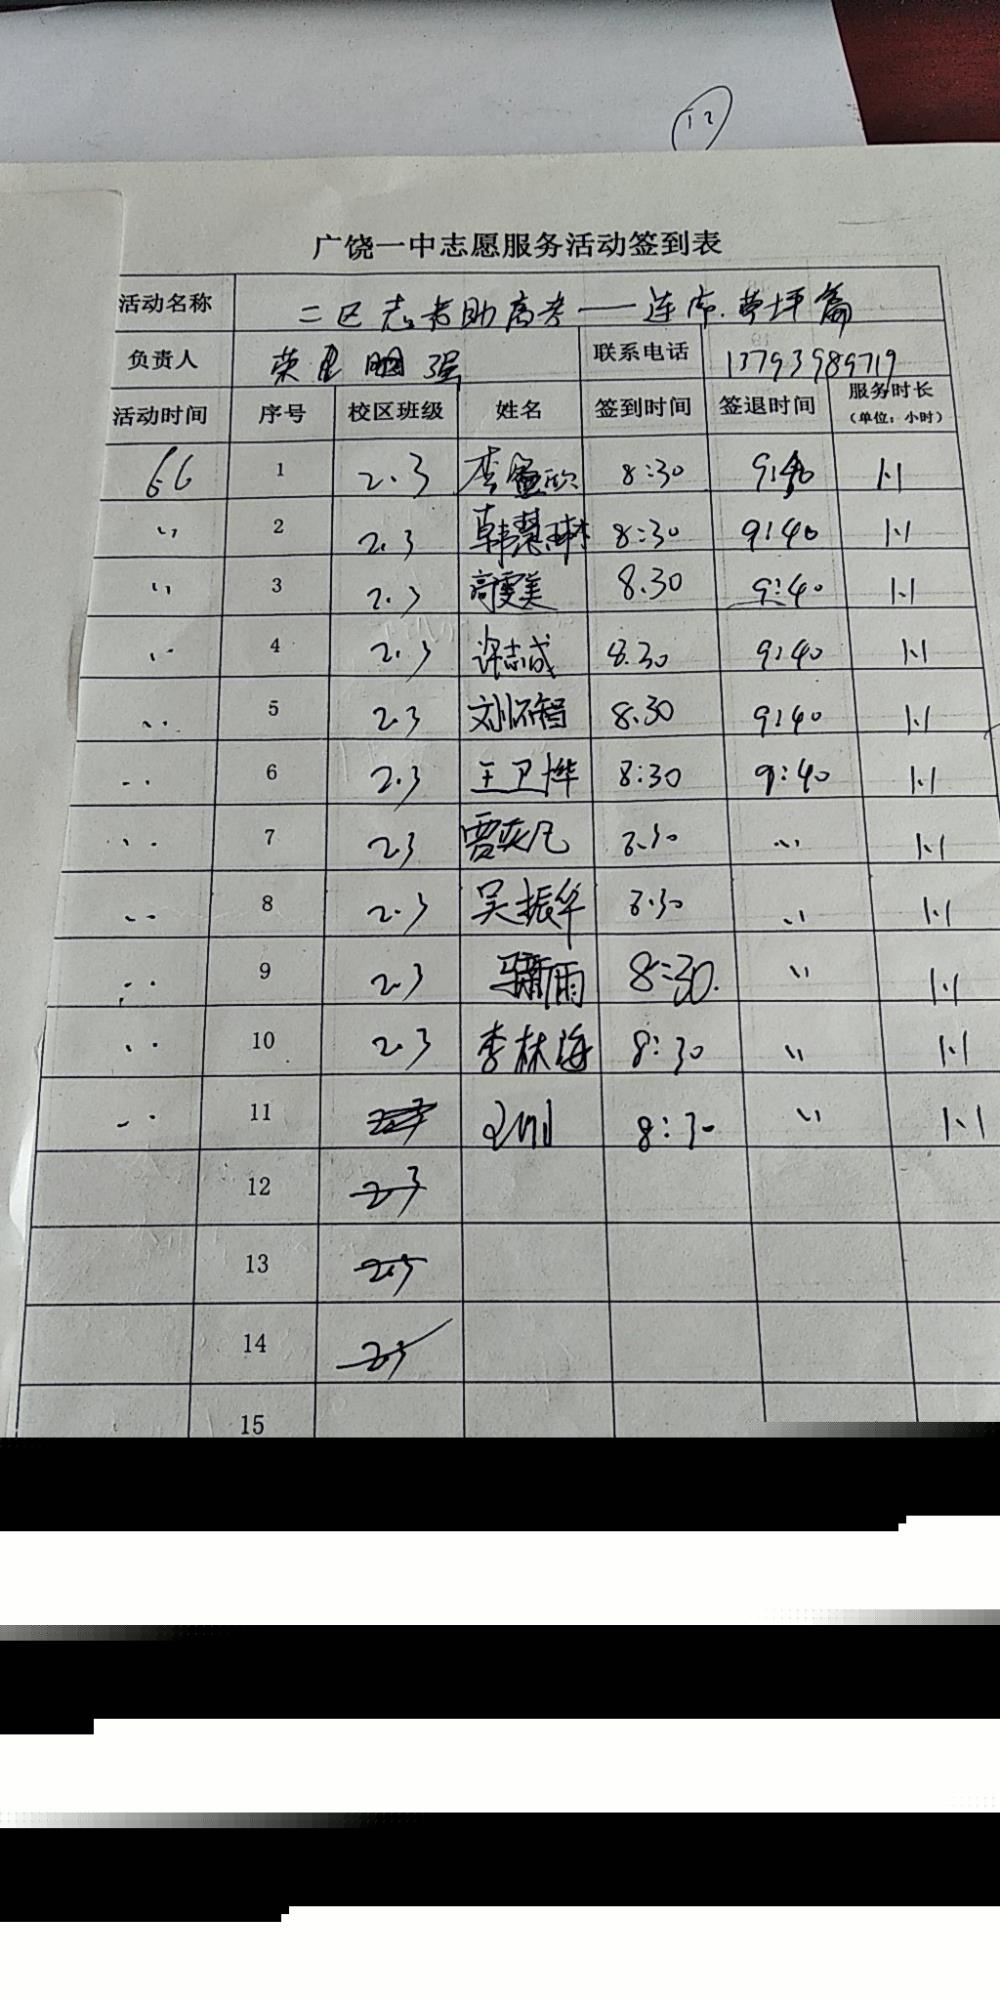 12
广饶一中志愿服务活动签到表
活动名称 二区志者助高考——连廊.草坪篇
负责人 荣 强 联系电话 13793989719
活动时间 序号 校区班级 姓名 签到时间 签退时间 服务时长
(单位：小时)
6.6 1 2.3 李 欣 8:30 9:40 1.1
〃 2 2.3 韩慧琳 8:30 9:40 1.1
〃 3 2.3 高雯美 8.30 9:40 1.1
〃 4 2.3 许志成 8.30 9:40 1.1
〃 5 2.3 刘怀智 8.30 9:40 1.1
〃 6 2.3 王卫桦 8:30 9:40 1.1
〃 7 2.3 贾奕凡 8.30 〃 1.1
〃 8 2.3 吴振华 8.30 〃 1.1
〃 9 2.3 雨 8:30. 〃 1.1
〃 10 2.3 李林海 8:30 〃 1.1
〃 11 8:30 〃 1.1
12 2.3
13 2.3
14 2.3
15